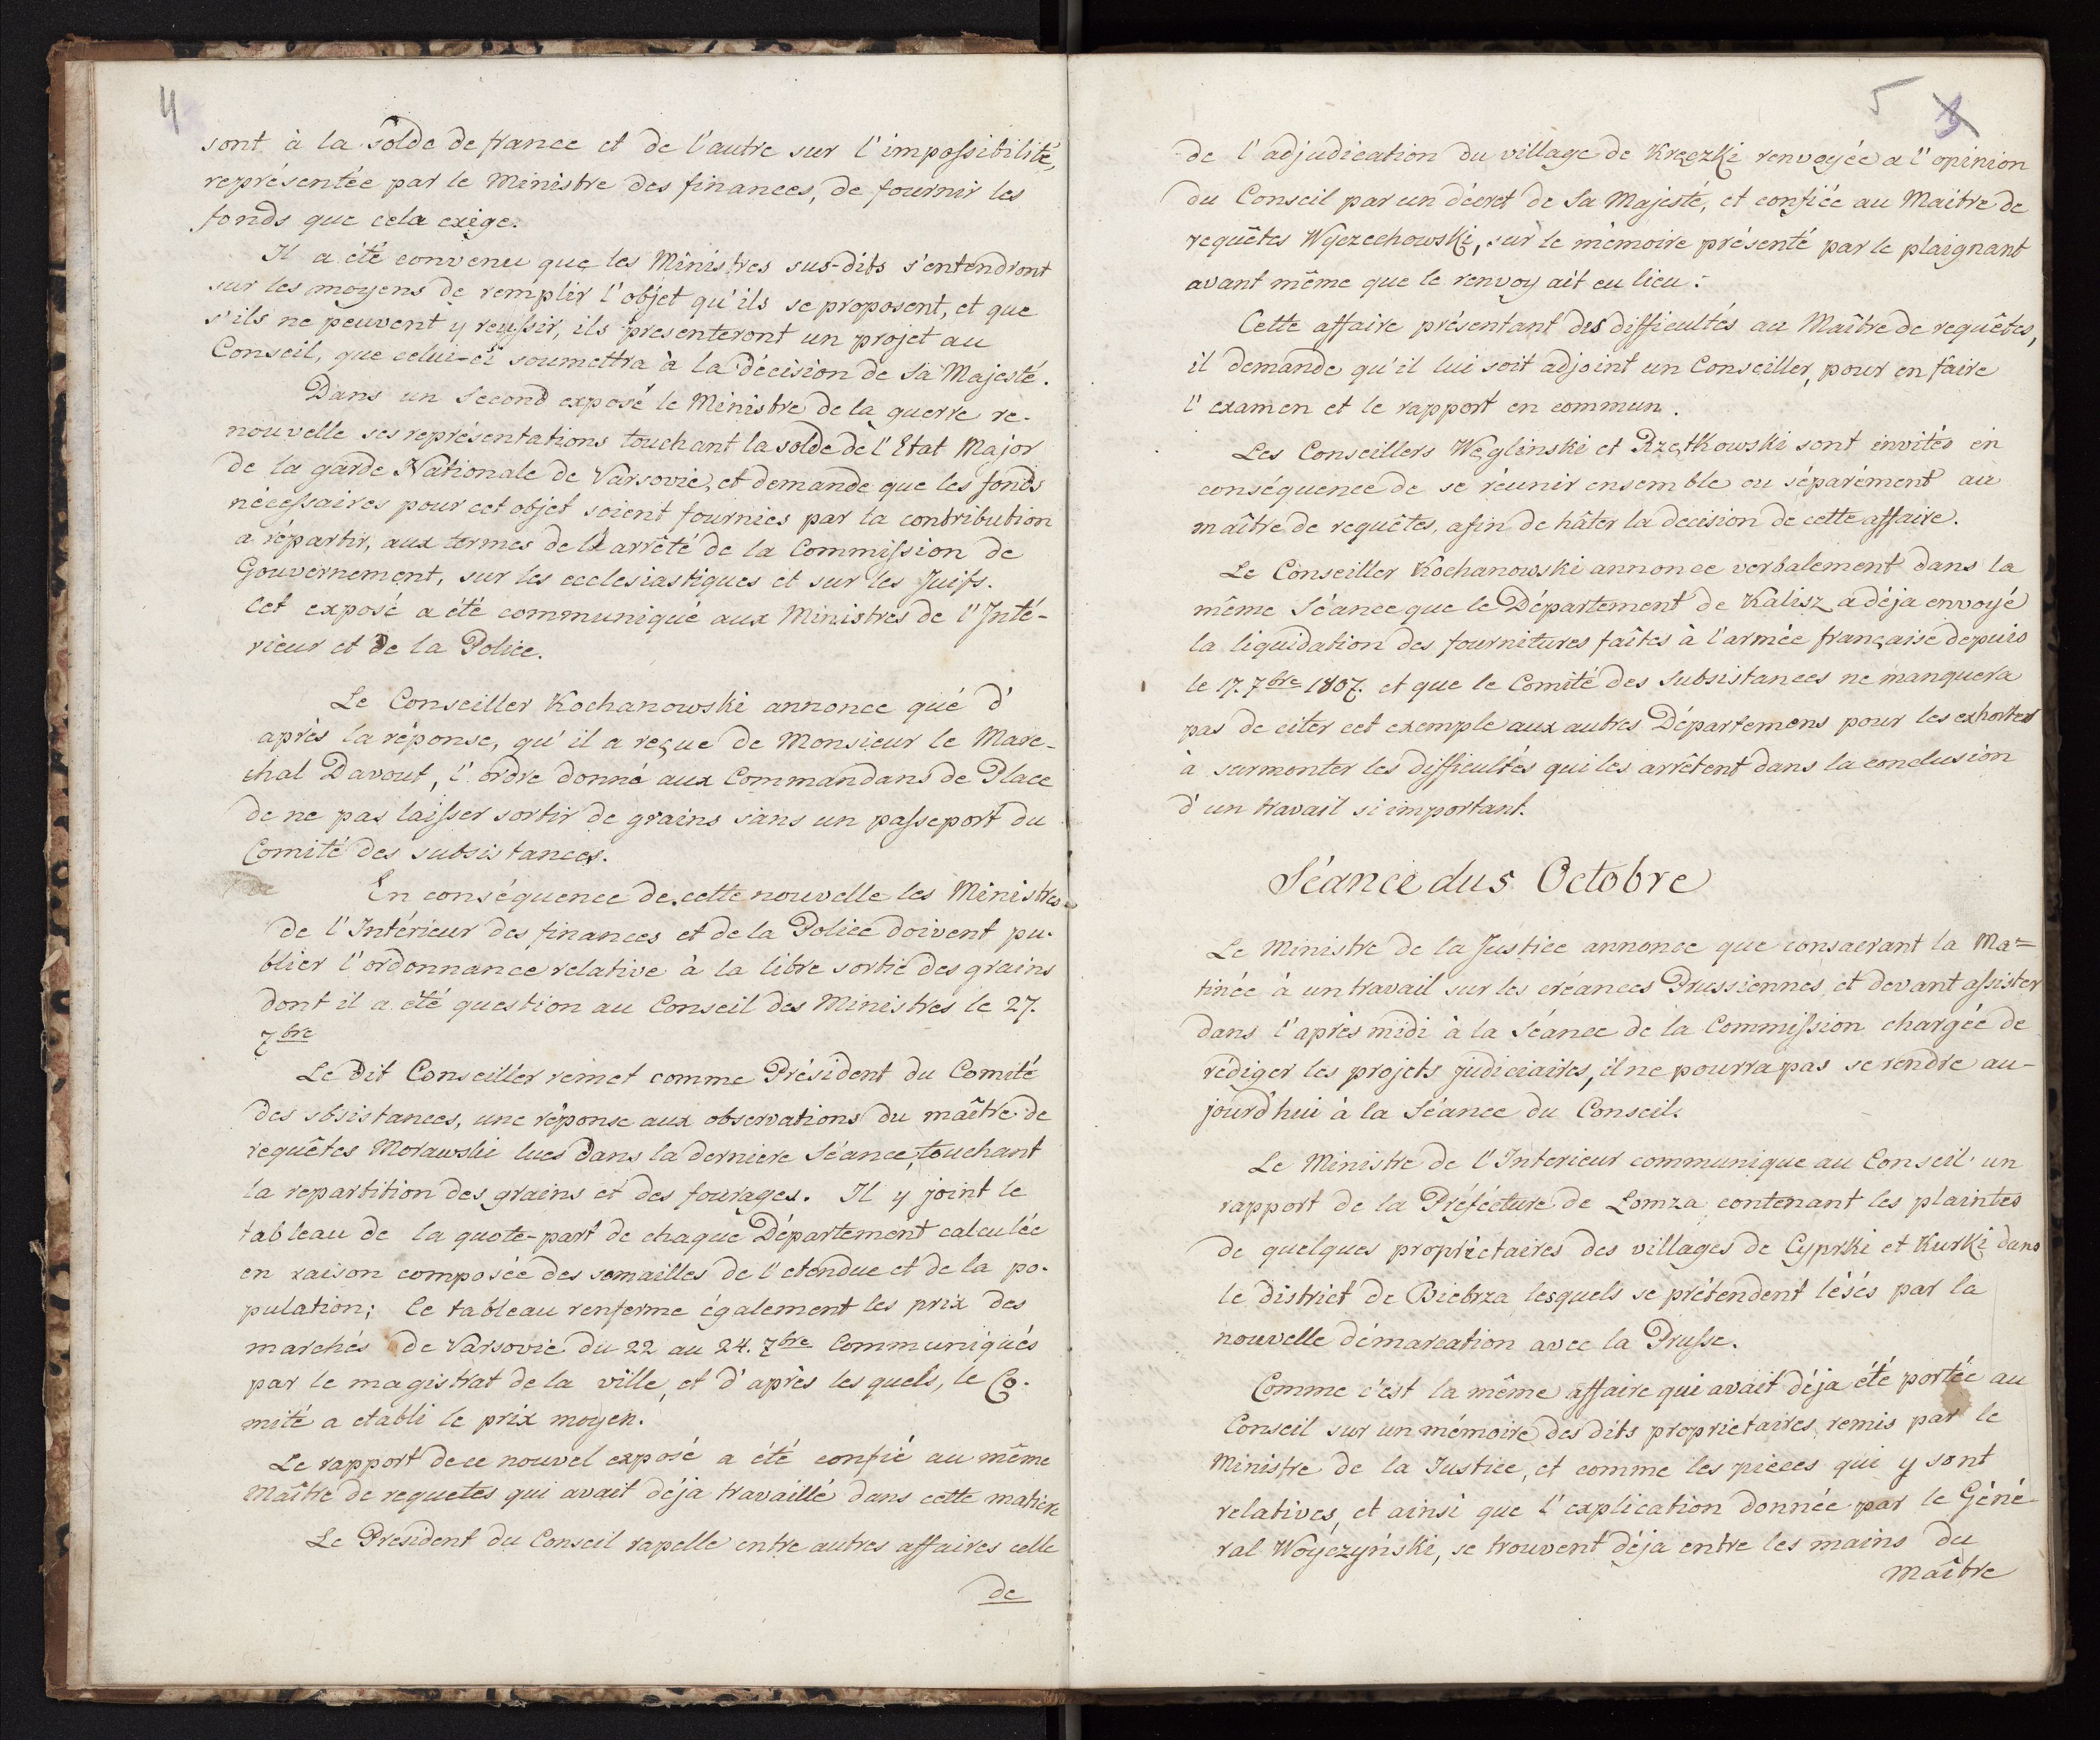 4
sont à la solde de france et de l'autre sur l'impossibilité,
représentée par le Ministre des finances, de fournir les
fonds que cela exige.
Il a été convenu que les Ministres sus-dits s'entendront
sur les moyens de remplir l'objet qu'ils se proposent, et que
s'ils ne peuvent y reussir, ils presenteront un projet au
Conseil, que celui-ci soumettra à la décision de Sa Majesté.
Dans un Second exposé le Ministre de la guerre re-
nouvelle ses représentations touchant la solde de l'Etat Major
de la garde Nationale de Varsovie, et demande que les fonds
nécessaires pour cet objet soient fournies par la contribution
a répartir, aux termes de l'arrêté de la Commission de
Gouvernement, sur les ecclesiastiques et sur les Juifs.
Cet exposé a été communiqué aux Ministres de l'Inté-
rieur et de la Police.
Le Conseiller Kochanowski annonce qué d'
après la réponse, qu'il a reçue de Monsieur le Mare-
chal Davout, l'ordre donné aux Commandans de Place
de ne pas laisser sortir de grains sans un passeport du
Comité des subsistances.
En conséquence de cette nouvelle les Ministres
de l'Intérieur des finances et de la Police doivent pu-
blier l'ordonnance relative à la libre sortie des grains
dont il a été question au Conseil des Ministres le 27.
7bre
Le Dit Conseiller remet comme Président du Comité
des sbsistances, une réponse aux observations du maître de
requêtes Morawski lues dans la derniere Séance, touchant
la repartition des grains et des fourages. Il y joint le
tableau de la quote-part de chaque Département calculée
en raison composée des semailles de l'etendue et de la po-
pulation; le tableau renferme également les prix des
marchés de Varsovie du 22 au 24. 7bre Communiqués
par le magistrat de la ville, et d'après les quels, le Co-
mité a etabli le prix moyen.
Le rapport de ce nouvel exposé a été confié au même
Maître de requetes qui avait déja travaillé dans cette matiere
Le Président du Conseil rapelle entre autres affaires celle
de
5
de l'adjudication du village de Kręczki renvoyée a l'opinion
du Conseil par un décret de Sa Majesté, et confiée au Maître de
requêtes Wyczechowski, sur le mémoire présenté par le plaignant
avant même que le renvoy ait eu lieu.
Cette affaire présentant des difficultés au Maître de requêtes,
il demande qu'il lui soit adjoint un Conseiller, pour en faire
l'examen et le rapport en commun.
Les Conseillers Węglinski et Rzętkowski sont invités en
conséquence de se réunir ensemble ou séparément au
maître de requêtes, afin de hâter la decision de cette affaire.
Le Conseiller Kochanowski annonce verbalement dans la
même Séance que le Département de Kalisz a déja envoyé
la liquidation des fournitures faîtes à l'armée française depuis
le 17. 7bre 1807. et que le Comité des Subsistances ne manquera
pas de citer cet exemple aux autres Départemens pour les exhorter
à surmonter les difficultés qui les arrêtent dans la conclusion
d'un travail si important.
Séance du 5 Octobre
Le Ministre de la Justice annonce que consacrant la Ma=
tinée à un travail sur les créances Prussiennes, et devant assister
dans l'après midi à la Séance de la Commission chargée de
rédiger les projets judiciaires, il ne pourra pas se rendre au-
jourd'hui à la Séance du Conseil.
Le Ministre de l'Interieur communique au Conseil un
rapport de la Préfecture de Lomza contenant les plaintes
de quelques proprietaires des villages de Cyprki et Kurki dans
le district de Biebrza lesquels se prétendent lésés par la
nouvelle démarcation avec la Prusse.
Comme c'est la même affaire qui avait déja été portée au
Conseil sur un mémoire des dits proprietaires remis par le
Ministre de la Justice, et comme les pieces qui y sont
relatives, et ainsi que l'explication donnée par le Géné-
ral Woyczyński, se trouvent déja entre les mains du
maître